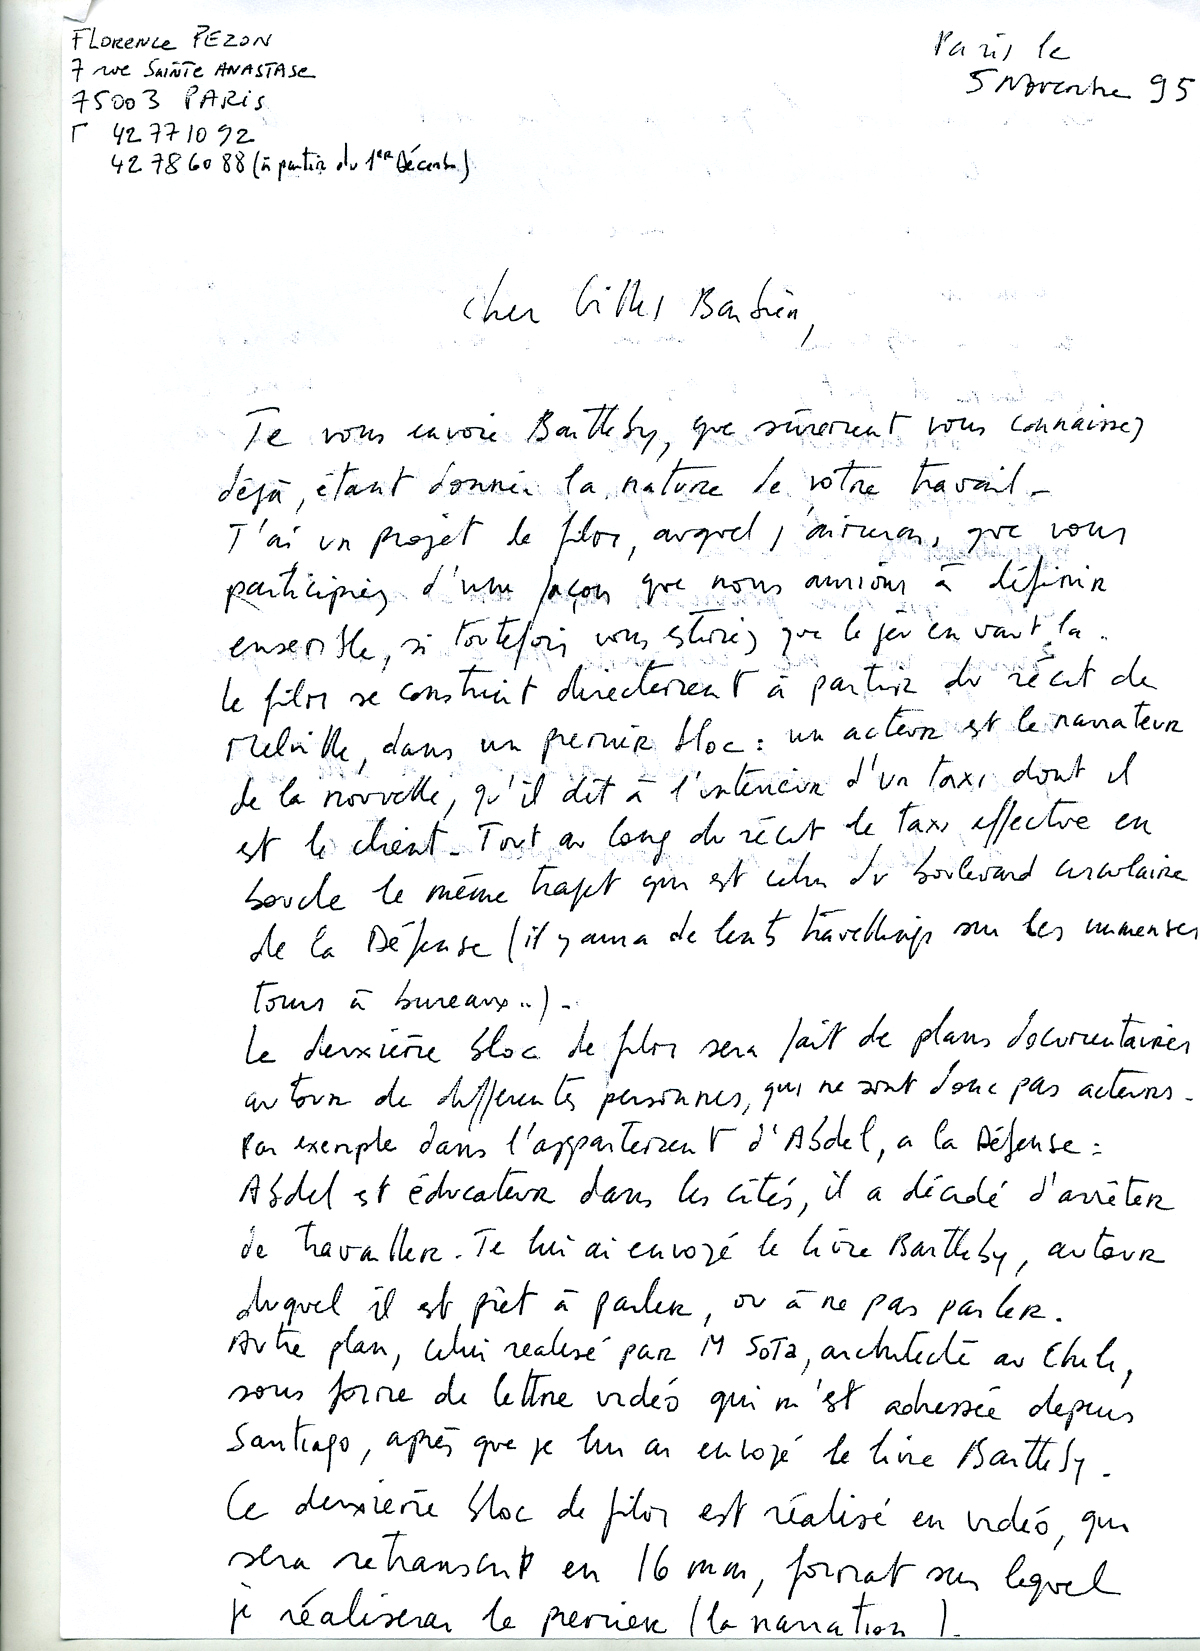 FLORENCE PEZON
7 rue SAINTE ANASTASE
75003 PARIS
T 42 77 10 92
42 78 60 88 (à partir du 1er Décembre)
Paris le
5 Novembre 95
Cher Gilles Barbier,
Je vous envoie Bartleby, que sûrement vous connaissez
déjà, étant donnée la nature de votre travail.
J'ai un projet de film, auquel j'aimerais que vous
participiez d'une façon que nous aurions à définir
ensemble, si toutefois vous estimez que le jeu en vaut la..
Le film se construit directement à partir du récit de
Melville, dans un premier bloc : un acteur est le narrateur
de la nouvelle, qu'il dit à l'intérieur d'un taxi dont il
est le client. Tout au long du récit le taxi effectue en
boucle le même trajet qui est celui du boulevard circulaire
de la Défense (il y aura de lents travellings sur les immenses
tours à bureaux..).
Le deuxième bloc de film sera fait de plans documentaires
autour de differentes personnes, qui ne sont donc pas acteurs.
Par exemple dans l'appartement d'Abdel, a la Défense :
Abdel est éducateur dans les cités, il a décidé d'arrêter
de travailler. Je lui ai envoyé le livre Bartleby, autour
duquel il est prêt à parler, ou à ne pas parler.
Autre plan, celui realisé par M Soto, architecte au Chili,
sous forme de lettre vidéo qui m'est adressée depuis
Santiago, après que je lui ai envoyé le livre Bartleby.
Ce deuxième bloc de film est réalisé en vidéo, qui
sera retranscrit en 16 mm, format sur lequel
je réaliserai le premier (la narration).